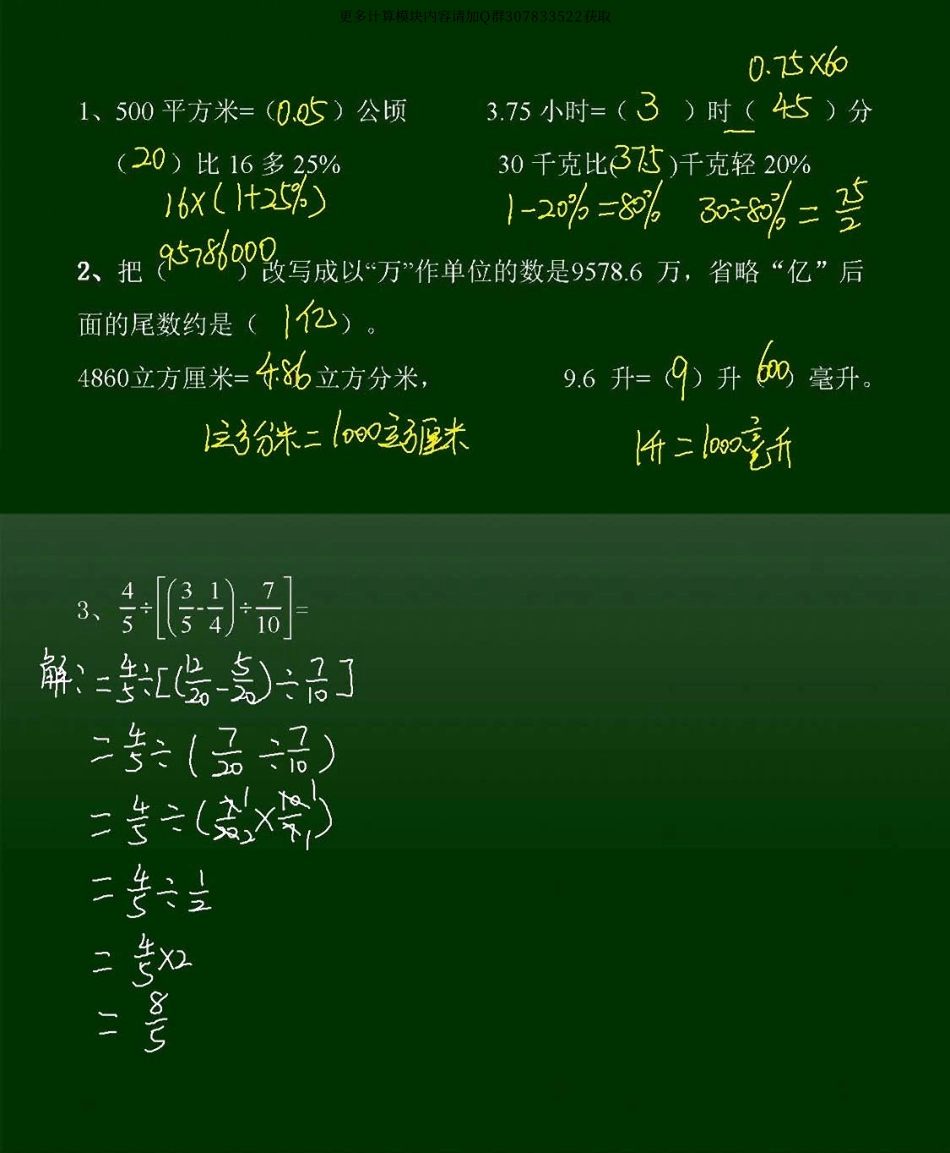 更多计算模块内容请加Q群307833522获取
0.75×60
1、500 平方米=（0.05）公顷 3.75 小时=（3）时（45）分
（20）比 16 多 25% 30 千克比(37.5)千克轻 20%
16×(1+25%) 1-20%=80% 30÷80%=75/2
2、把（95786000）改写成以“万”作单位的数是9578.6 万，省略“亿”后
面的尾数约是（1亿）。
4860立方厘米=4.86立方分米， 9.6 升=（9）升（600）毫升。
1立方分米=1000立方厘米 1升=1000毫升
3、4/5÷[(3/5-1/4)÷7/10]=
解：=4/5÷[(12/20-5/20)÷7/10]
=4/5÷(7/20÷7/10)
=4/5÷(7/20×10/7) 1 2 1 1
=4/5÷1/2
=4/5×2
=8/5